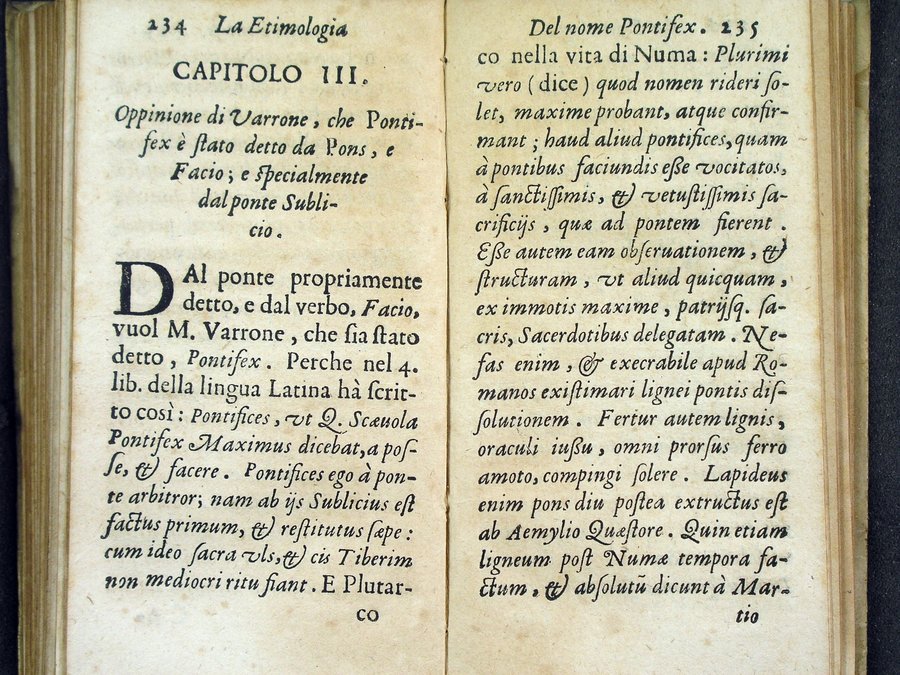 234 La Etimologia
CAPITOLO III.
Oppinione di Varrone, che Ponti-
fex è ſtato detto da Pons, e
Facio; e ſpecialmente
dal ponte Subli-
cio.
DAl ponte propriamente
detto, e dal verbo, Facio,
vuol M. Varrone, che ſia ſtato
detto, Pontifex. Perche nel 4.
lib. della lingua Latina hà ſcrit-
to così: Pontifices, vt Q. Scæuola
Pontifex Maximus dicebat, a poſ-
ſe, & facere. Pontifices ego à pon-
te arbitror; nam ab ijs Sublicius eſt
factus primum, & reſtitutus ſæpe:
cum ideo ſacra vls, & cis Tiberim
non mediocri ritu fiant. E Plutar-
co
Del nome Pontifex. 235
co nella vita di Numa: Plurimi
vero (dice) quod nomen rideri ſo-
let, maxime probant, atque confir-
mant; haud aliud pontifices, quam
à pontibus faciundis eſſe vocitatos,
à ſanctiſſimis, & vetuſtiſſimis ſa-
crificijs, quæ ad pontem fierent.
Eſſe autem eam obſeruationem, &
ſtructuram, vt aliud quicquam,
ex immotis maxime, patrijſq. ſa-
cris, Sacerdotibus delegatam. Ne-
fas enim, & execrabile apud Ro-
manos exiſtimari lignei pontis diſ-
ſolutionem. Fertur autem lignis,
oraculi iuſſu, omni prorſus ferro
amoto, compingi ſolere. Lapideus
enim pons diu poſtea extructus eſt
ab Aemylio Quæſtore. Quin etiam
ligneum poſt Numæ tempora fa-
ctum, & abſolutū dicunt à Mar-
tio